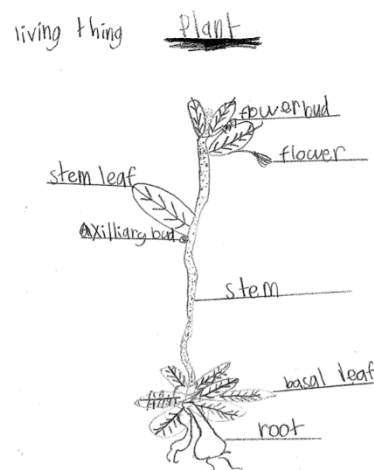 living thing Plant
flowerbud
flower
stem leaf
Axilliarybud
stem
basal leaf
root